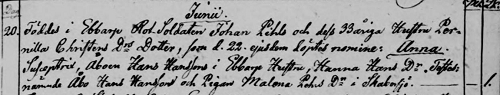 Junii.
20. Föddes i Ebbarp Rot. Soldaten Johan Pihls och dess 33åriga Hustru Per-
nilla Christens Drs Dotter, som d. 22 ejusdem löptes nomine: Anna.
Susceptrix, Åboen Hans Hanssons i Ebbarp Hustru, Hanna Hans Dr, Testes:
nämnde Åbo Hans Hansson och Pigan Malena Pehrs Dr i Skabersjö. 1.